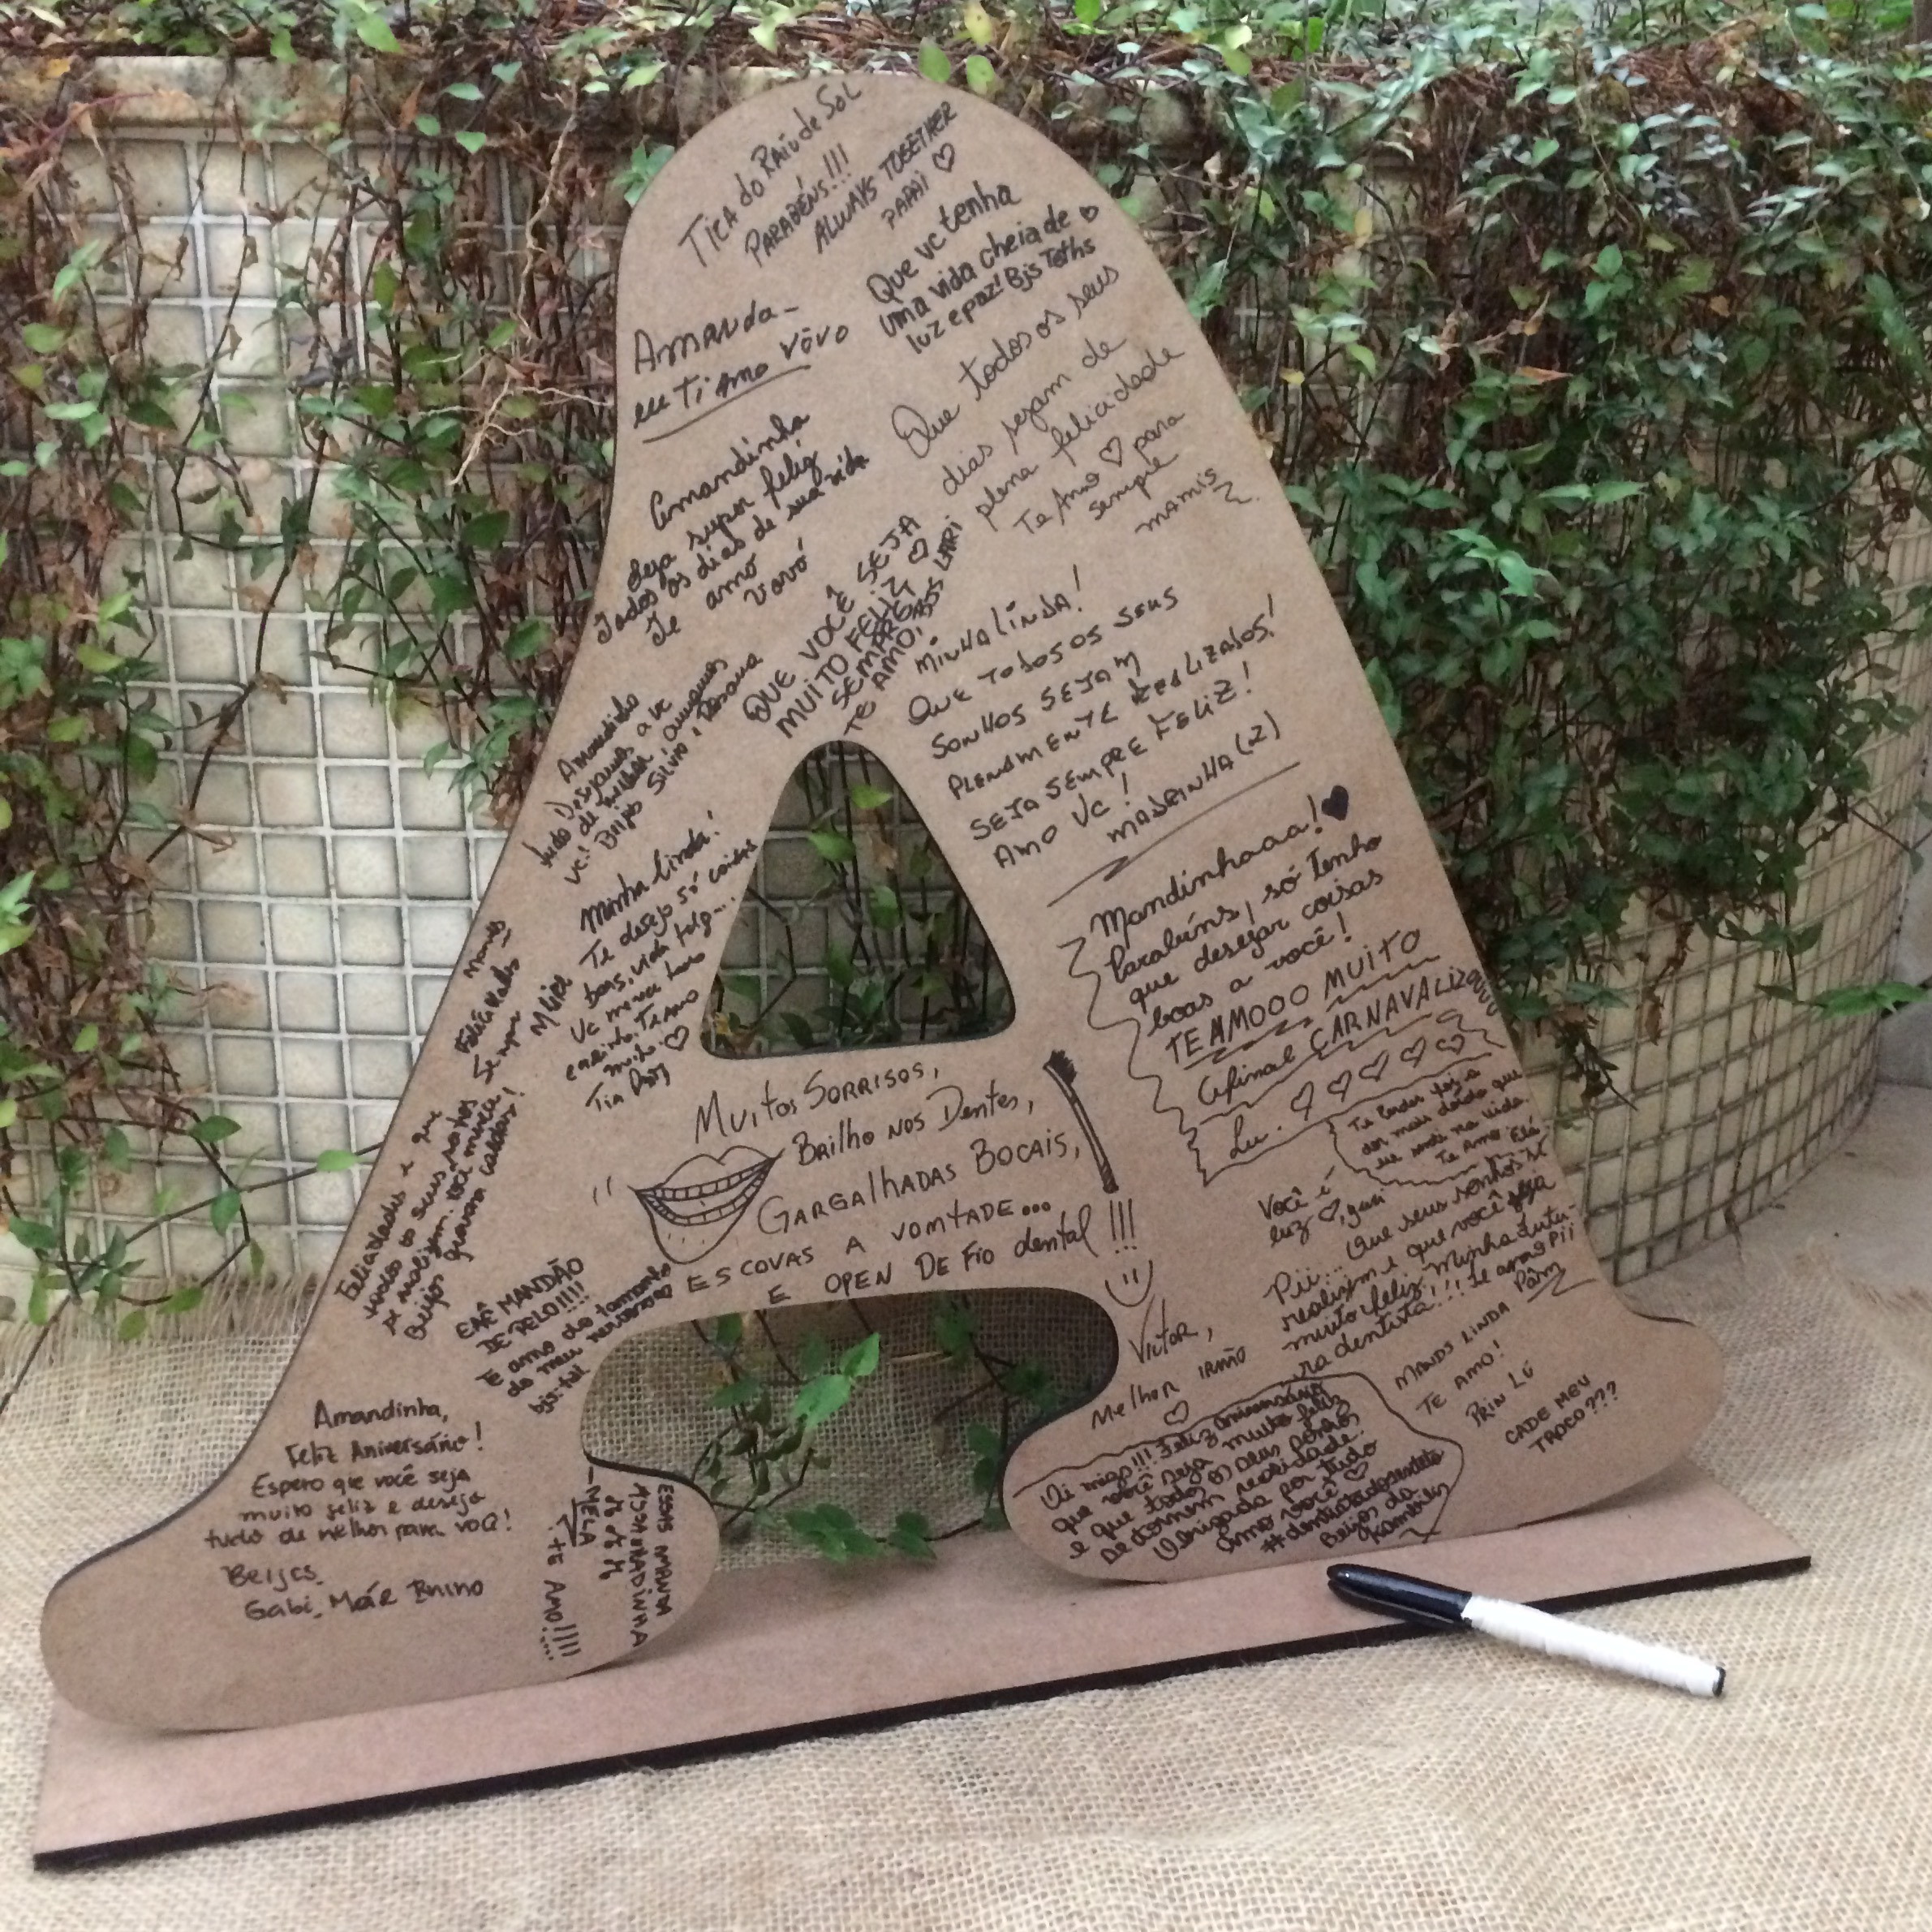 TiCA do RAiO de SOL
PARABÉNS!!!
ALWAYS TOGETHER
PAPAI ♡
Que vc tenha
uma vida cheia de ♡
luz e paz! Bjs Toths
Amanda-
eu Ti Amo vôvo
Que todos os seus
dias sejam de
plena felicidade
Te Amo ♡ para
sempre
mamis
Amandinha
Seja super feliz
Todos os dias de sua vida
Te amo
Vovó
QUE VOCÊ SEJA
MUITO FELIZ ♡
SEMPRE
TE AMO! BJS LARI
MINHA LINDA!
QUE TODOS OS SEUS
SONHOS SEJAM
PLENAMENTE REALIZADOS!
SEJA SEMPRE FELIZ!
AMO VC!
MADRINHA (2)
Amandinha
Desejamos a vc
tudo de melhor, amamos
vc! Beijo Silvio,
Minha Linda!
Te desejo só coisas
boas, vida
Vc merece
carinho. TE AMO
muito. ♡
Tia
Mandinhaaa! ♥
Parabéns, só tenho
que desejar coisas
boas a você!
TE AMOOO MUITO
Afinal CARNAVALIZA
Lu. ♡ ♡ ♡ ♡ ♡
Te perder foi a
dor mais doída que
eu senti na vida.
Te Amo.
Felicidades e que
todos os seus sonhos
se realizem. Você merece!
Beijos
Muitos SORRISOS,
BRilho NOS Dentes,
GARGAlhADAS BOCAIS,
ESCOVAS A VONTADE...
E OPEN DE Fio dental !!!
VICTOR,
Melhor IRMÃO
♡
Você é
luz ♡,
Pii... Que seus sonhos se
realizem e que você seja
muito feliz, minha futu-
ra dentista!!! Te amo Pii
Pâm
EAÊ MANDÃO
DE PELO!!!!
TE amo do tamanho
do meu nervoso
bjs
MANDS LINDA
TE AMO!
PRIN LÚ
CADE MEU
TROCO???
Amandinha,
Feliz Aniversário!
Espero que você seja
muito feliz e desejo
tudo de melhor para você!
Beijos
Gabi, Moár Bruno
ESSAS AMANDA
TE AMO!!!!...
Oi migo!!! Feliz aniversário
que você seja muito feliz
e que todos os seus sonhos
se tornem realidade.
Obrigada por tudo
Amo você ♡
#dentistadosexteto
Beijos da